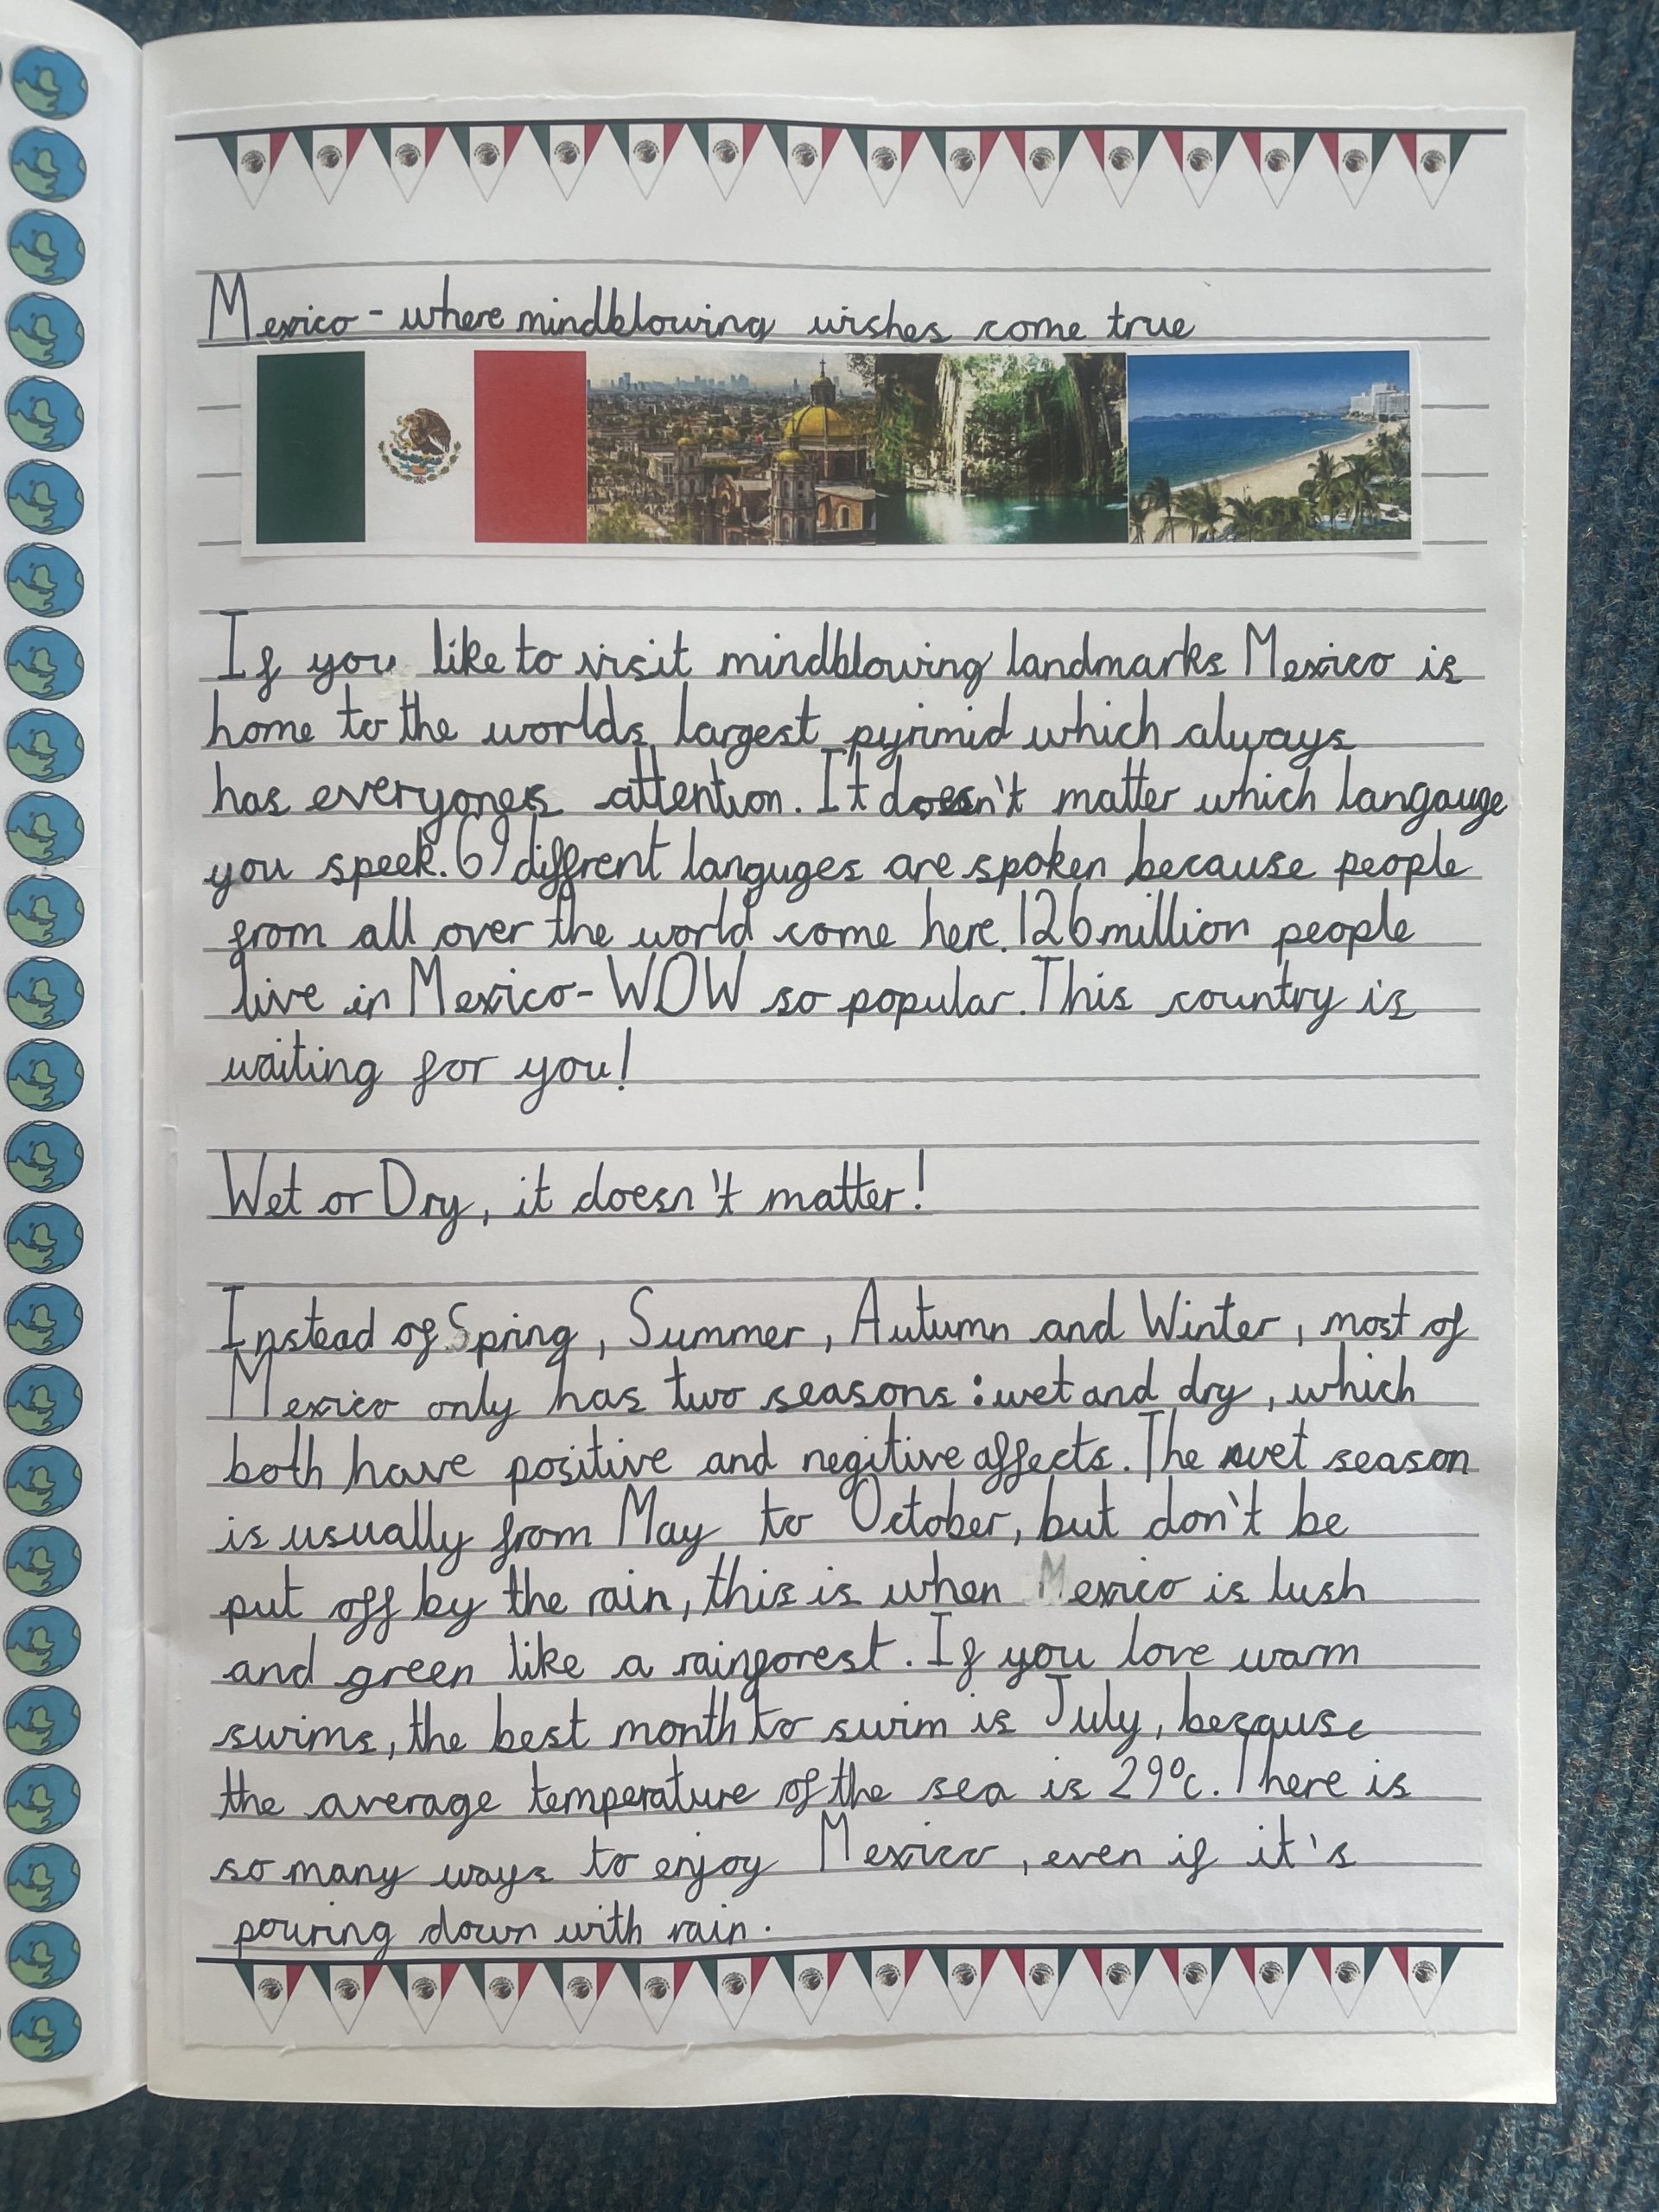 Mexico - where mindblowing wishes come true
If you like to visit mindblowing landmarks Mexico is
home to the worlds largest pyrimid which always
has everyones attention. It doesn't matter which langauge
you speek. 69 diffrent languges are spoken because people
from all over the world come here. 126 million people
live in Mexico - WOW so popular. This country is
waiting for you!
Wet or Dry, it doesn't matter!
Instead of Spring, Summer, Autumn and Winter, most of
Mexico only has two seasons: wet and dry, which
both have positive and negitive affects. The wet season
is usually from May to October, but don't be
put off by the rain, this is when Mexico is lush
and green like a rainforest. If you love warm
swims, the best month to swim is July, because
the average temperature of the sea is 29°c. There is
so many ways to enjoy Mexico, even if it's
pouring down with rain.